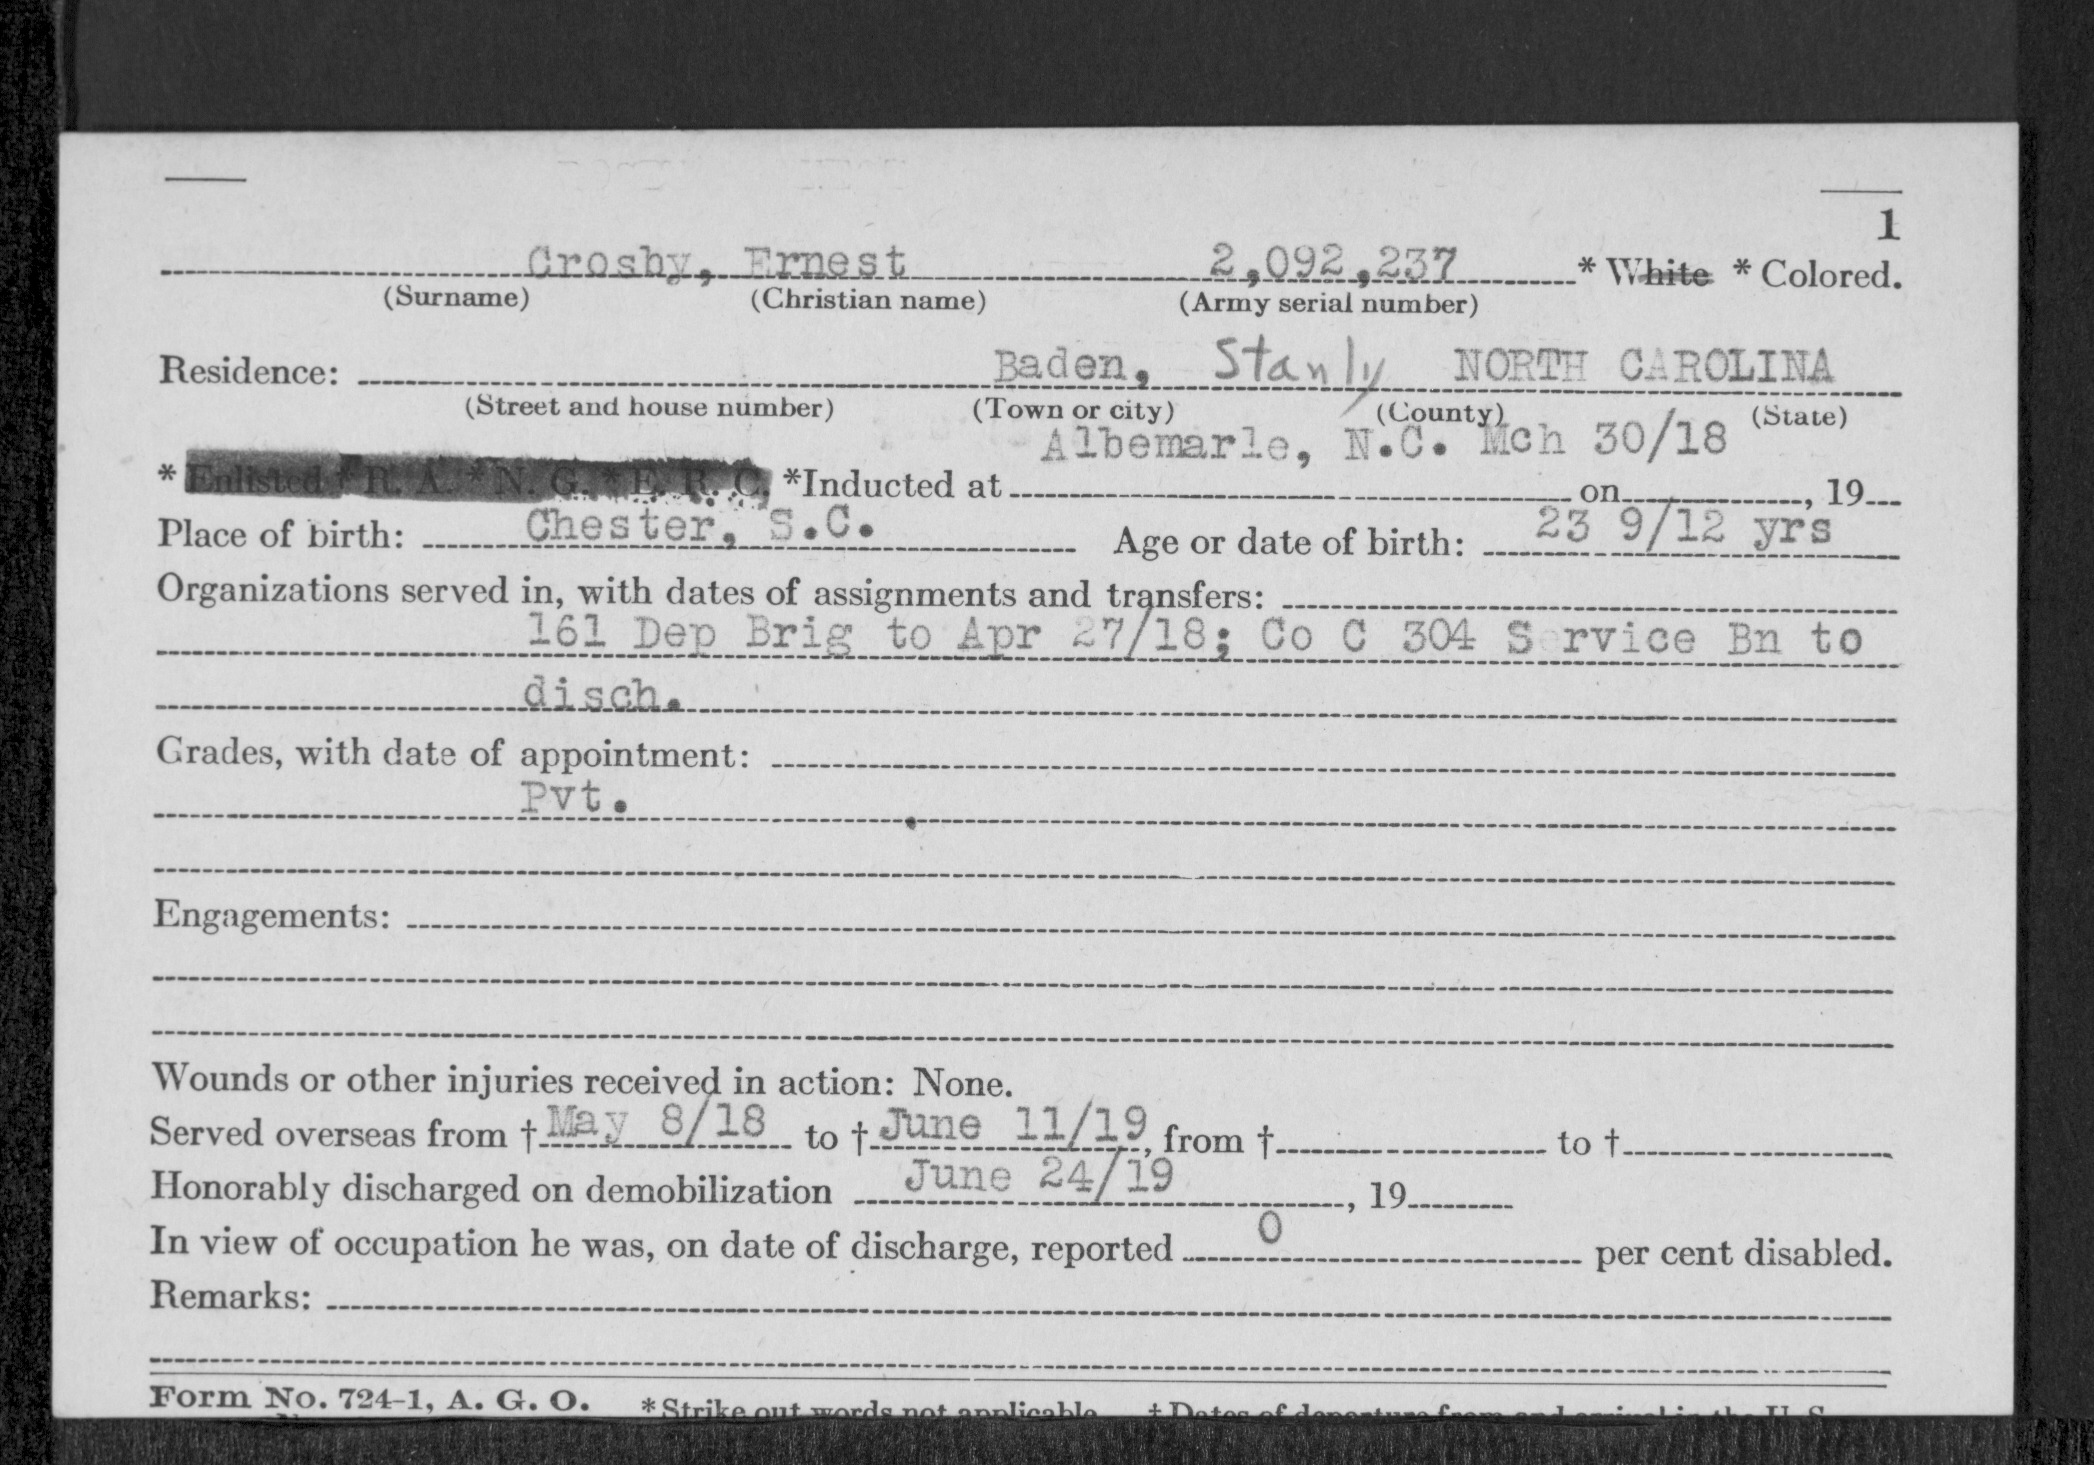 1
Crosby, Ernest 2,092,237 * White * Colored.
(Surname) (Christian name) (Army serial number)
Residence: Baden, Stanly NORTH CAROLINA
(Street and house number) (Town or city) (County) (State)
Albemarle, N.C. Mch 30/18
* Enlisted * R. A. * N. G. * E. R. C. *Inducted at on , 19
Place of birth: Chester, S.C. Age or date of birth: 23 9/12 yrs
Organizations served in, with dates of assignments and transfers:
161 Dep Brig to Apr 27/18; Co C 304 S rvice Bn to
disch.
Grades, with date of appointment:
Pvt.
Engagements:
Wounds or other injuries received in action: None.
Served overseas from † May 8/18 to † June 11/19, from † to †
Honorably discharged on demobilization June 24/19 , 19
In view of occupation he was, on date of discharge, reported 0 per cent disabled.
Remarks:
Form No. 724-1, A. G. O. * Strike out words not applicable † Dates of departure from and arrival in the U. S.